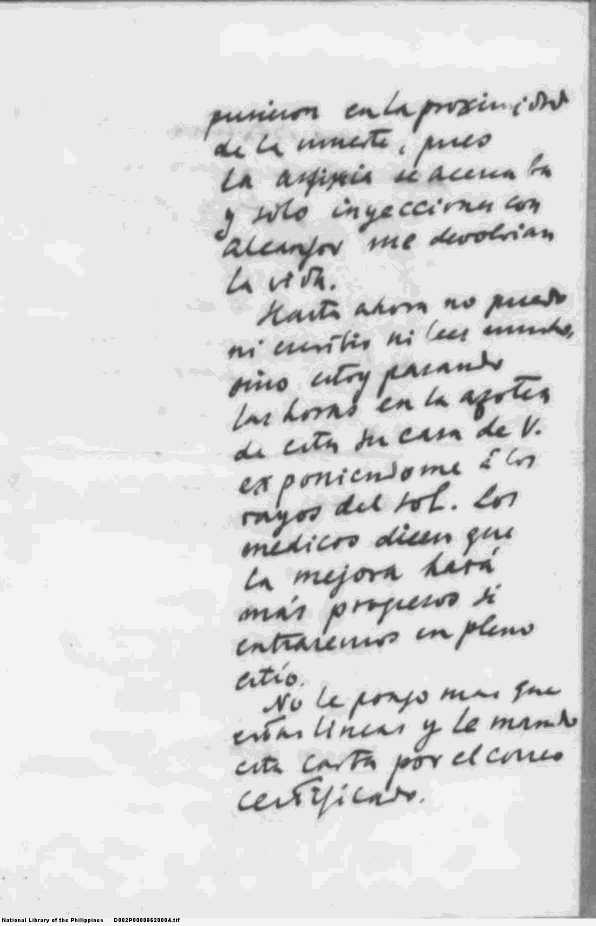 pusieron en la proximidad
de la muerte, pues
la asfixia se acercaba
y solo inyecciones con
alcanfor me devolvian
la vida.
Hasta ahora no puedo
ni escribir ni leer mucho,
sino estoy pasando
las horas en la azotea
de esta su casa de V.
exponiendome á los
rayos del sol. Los
medicos dicen que
la mejora hará
más progresos si
entraremos en pleno
estío.
No le pongo mas que
estas lineas y le mando
esta carta por el correo
certificado.
National Library of the Philippines D002P00000620004.tif